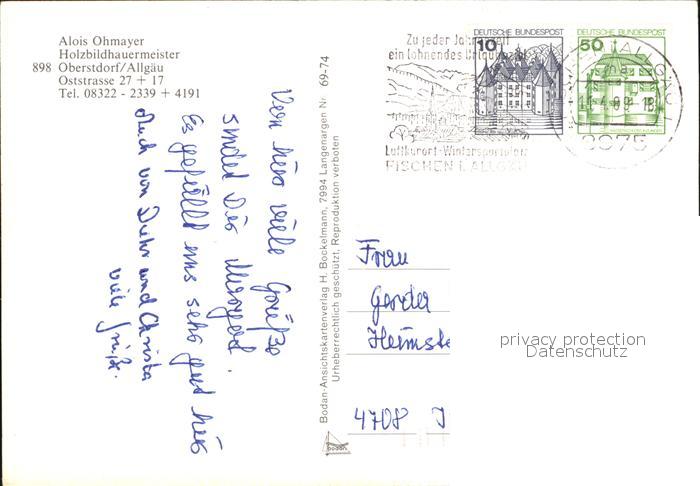 Alois Ohmayer
Holzbildhauermeister
898 Oberstdorf/Allgäu
Oststrasse 27 + 17
Tel. 08322 - 2339 + 4191
Zu jeder Jahreszeit
ein lohnendes Urlaubsziel
Luftkurort-Wintersportplatz
FISCHEN I. ALLGÄU
DEUTSCHE BUNDESPOST
10
DEUTSCHE BUNDESPOST
50
8975
Von hier viele Grüße
sendet Dir
Es gefällt uns sehr gut hier
Auch von und Christa
viele Grüße.
Bodan-Ansichtskartenverlag H. Bockelmann, 7994 Langenargen Nr. 69-74
Urheberrechtlich geschützt, Reproduktion verboten
bodan
Frau
Gerda
Heimste
4708
privacy protection
Datenschutz